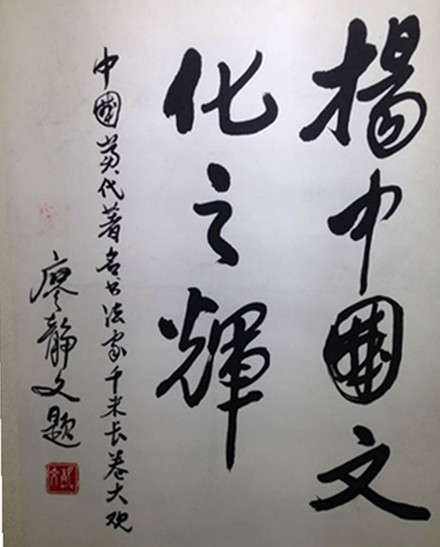 揚中國文
化之輝
中國當代著名书法家千米长卷大观
廖静文题